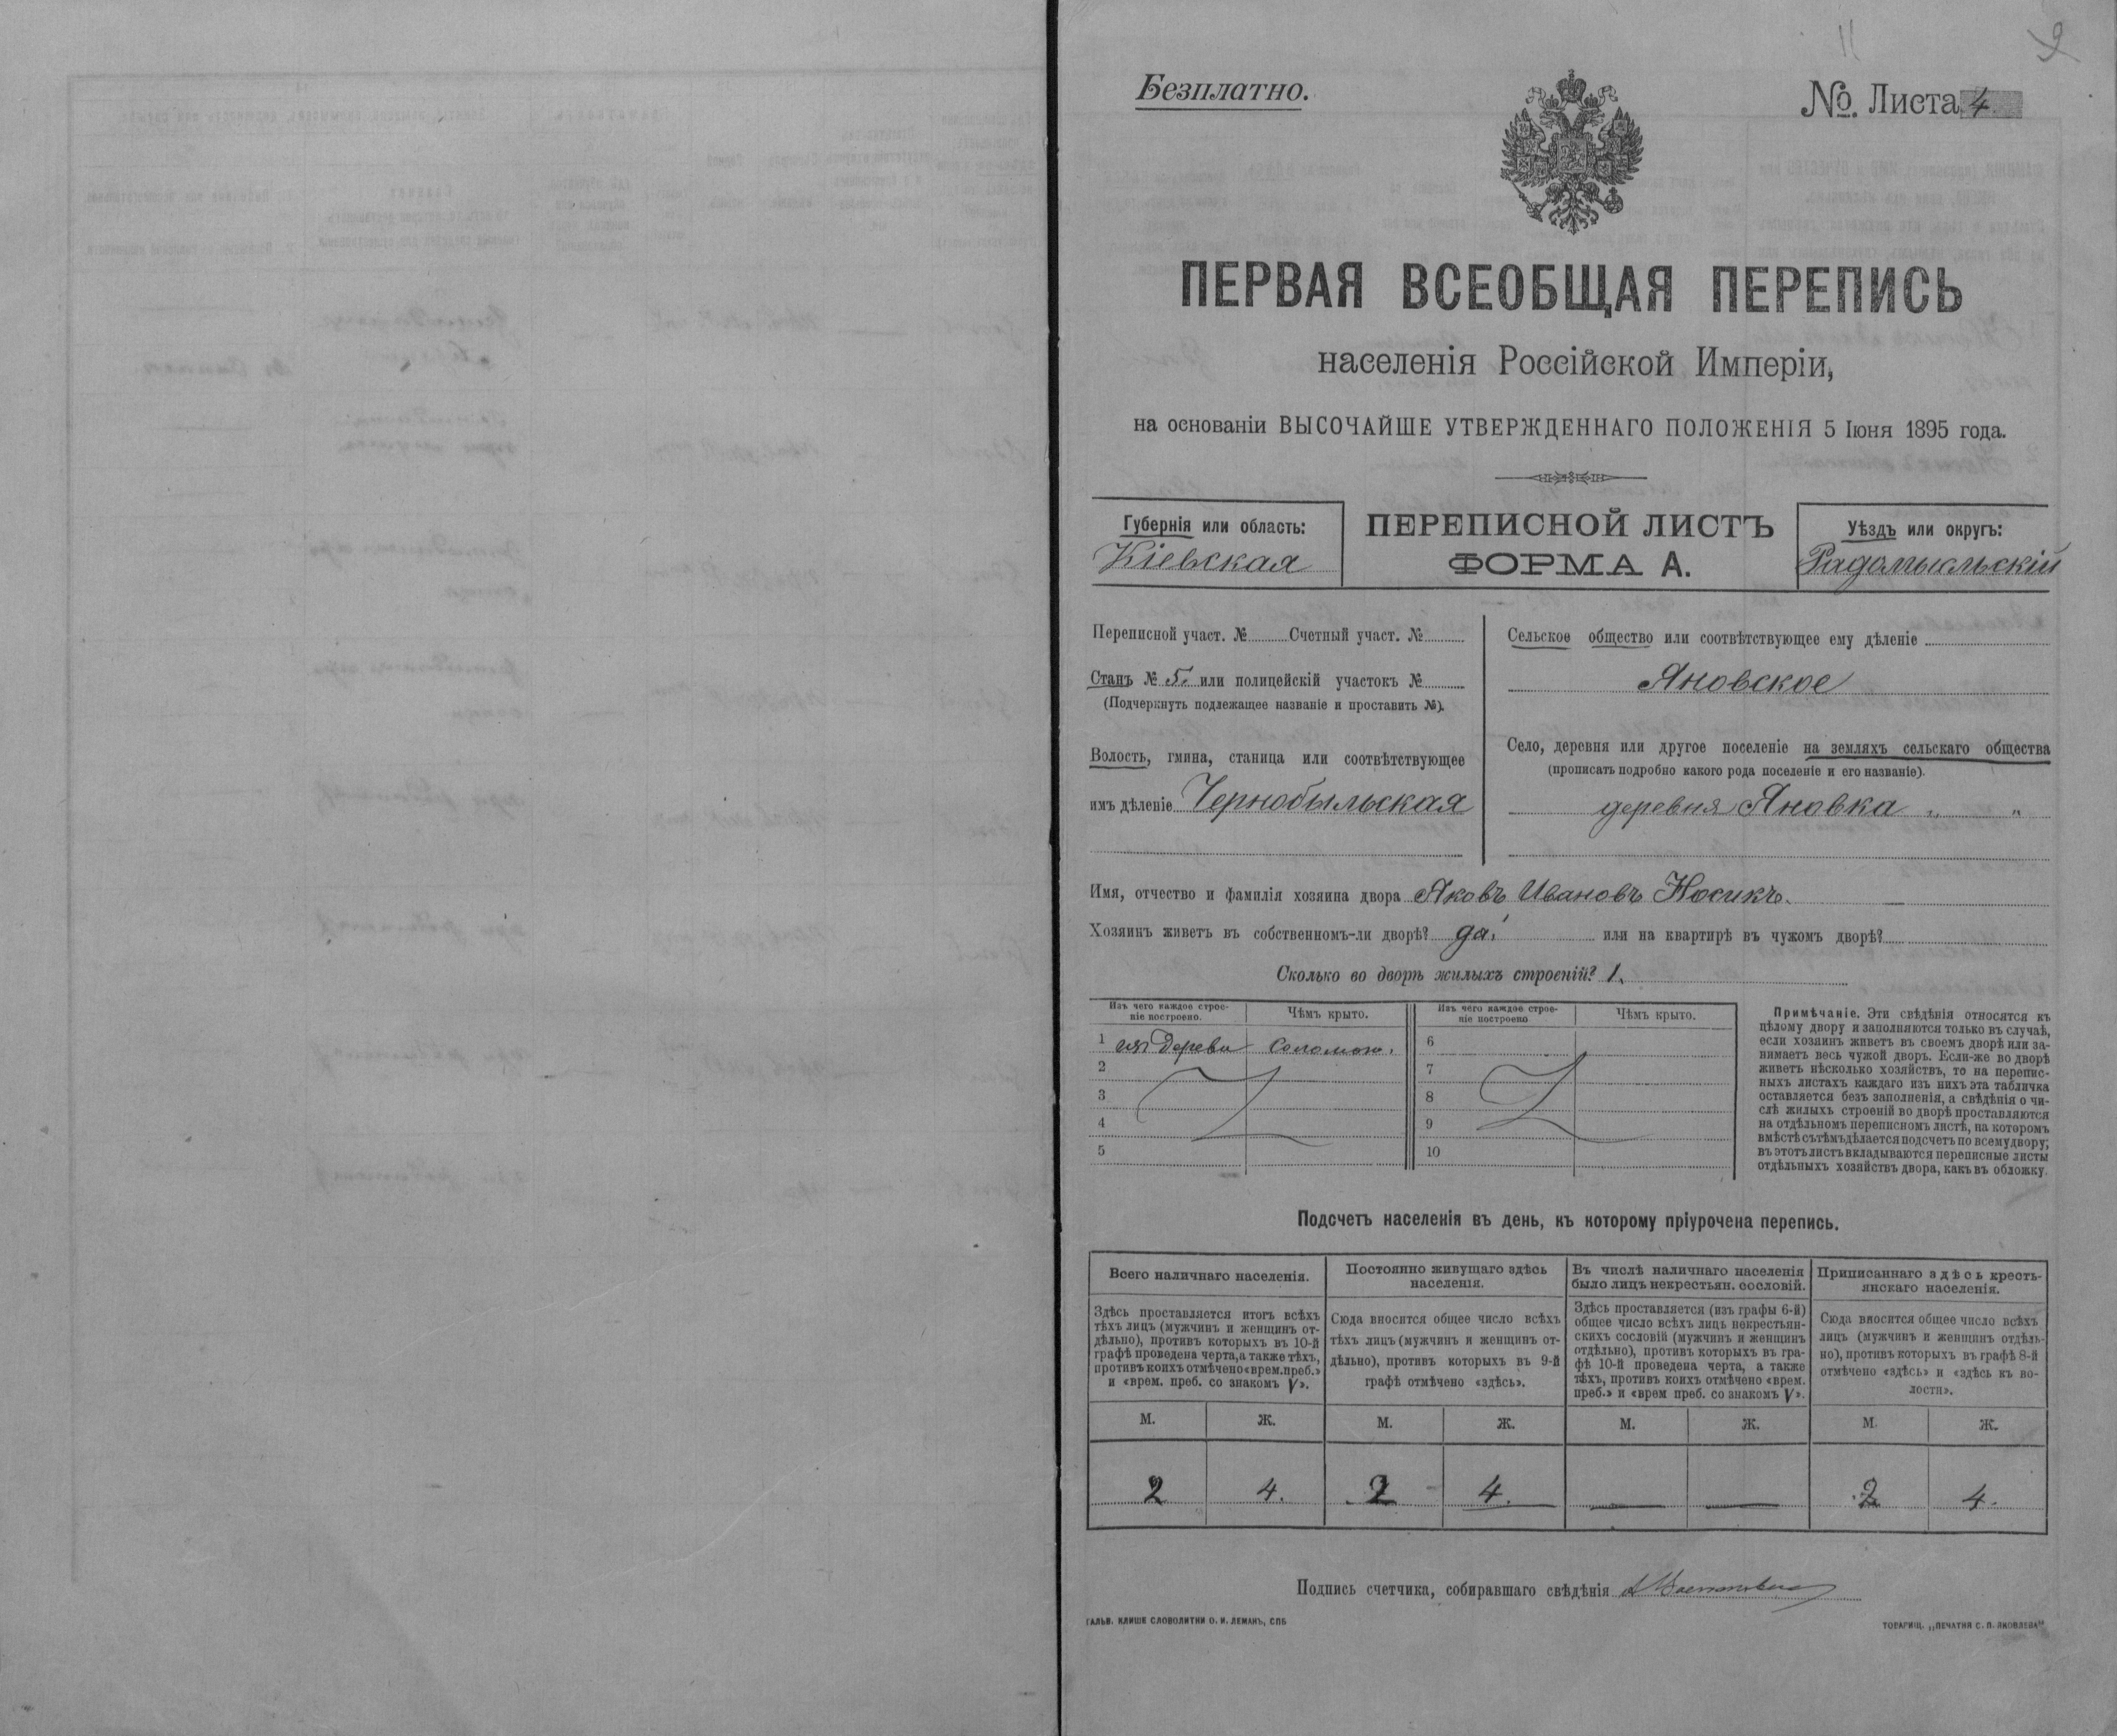 Безплатно.
№ Листа 4
ПЕРВАЯ ВСЕОБЩАЯ ПЕРЕПИСЬ
населенія Россійской Имперіи,
на основаніи ВЫСОЧАЙШЕ УТВЕРЖДЕННАГО ПОЛОЖЕНІЯ 5 Іюня 1895 года.
Губернія или область:
Кіевская
ПЕРЕПИСНОЙ ЛИСТЪ
ФОРМА А.
Уѣздъ или округъ:
Радомысльскій
Переписной участ. № Счетный участ. №
Станъ № 5. или полицейскій участокъ №
(Подчеркнуть подлежащее названіе и проставить №).
Волость, гмина, станица или соотвѣтствующее
имъ дѣленіе Чернобыльская
Сельское общество или соотвѣтствующее ему дѣленіе
Яновское
Село, деревня или другое поселеніе на земляхъ сельскаго общества
(прописать подробно какого рода поселеніе и его названіе).
деревня Яновка „ „
Имя, отчество и фамилія хозяина двора Яковъ Ивановъ Носикъ.
Хозяинъ живетъ въ собственномъ-ли дворѣ? да или на квартирѣ въ чужомъ дворѣ?
Сколько во дворѣ жилыхъ строеній? 1.
Изъ чего каждое строе-
ніе построено.
Чѣмъ крыто.
Изъ чего каждое строе-
ніе построено
Чѣмъ крыто.
1 изъ дерева соломою. 6
2 7
3 8
4 9
5 10
Примѣчаніе. Эти свѣдѣнія относятся къ
цѣлому двору и заполняются только въ случаѣ,
если хозяинъ живетъ въ своемъ дворѣ или за-
нимаетъ весь чужой дворъ. Если-же во дворѣ
живетъ нѣсколько хозяйствъ, то на перепис-
ныхъ листахъ каждаго изъ нихъ эта табличка
оставляется безъ заполненія, а свѣдѣнія о чи-
слѣ жилыхъ строеній во дворѣ проставляются
на отдѣльномъ переписномъ листѣ, на которомъ
вмѣстѣ съ тѣмъ дѣлается подсчетъ по всему двору;
въ этотъ листъ вкладываются переписные листы
отдѣльныхъ хозяйствъ двора, какъ въ обложку.
Подсчетъ населенія въ день, къ которому пріурочена перепись.
Всего наличнаго населенія.
Здѣсь проставляется итогъ всѣхъ
тѣхъ лицъ (мужчинъ и женщинъ от-
дѣльно), противъ которыхъ въ 10-й
графѣ проведена черта, а также тѣхъ,
противъ коихъ отмѣчено «врем. преб.»
и «врем. преб. со знакомъ V».
Постоянно живущаго здѣсь
населенія.
Сюда вносится общее число всѣхъ
тѣхъ лицъ (мужчинъ и женщинъ от-
дѣльно), противъ которыхъ въ 9-й
графѣ отмѣчено «здѣсь».
Въ числѣ наличнаго населенія
было лицъ некрестьян. сословій.
Здѣсь проставляется (изъ графы 6-й)
общее число всѣхъ лицъ некрестьян-
скихъ сословій (мужчинъ и женщинъ
отдѣльно), противъ которыхъ въ гра-
фѣ 10-й проведена черта, а также
тѣхъ, противъ коихъ отмѣчено «врем.
преб.» и «врем преб. со знакомъ V».
Приписаннаго здѣсь кресть-
янскаго населенія.
Сюда вносится общее число всѣхъ
лицъ (мужчинъ и женщинъ отдѣль-
но), противъ которыхъ въ графѣ 8-й
отмѣчено «здѣсь» и «здѣсь къ во-
лости».
М. Ж. М. Ж. М. Ж. М. Ж.
2 4. 2 4. — — 2 4.
Подпись счетчика, собиравшаго свѣдѣнія
ГАЛЬВ. КЛИШЕ СЛОВОЛИТНИ О. И. ЛЕМАНЪ, СПБ
ТОВАРИЩ. „ПЕЧАТНЯ С. П. ЯКОВЛЕВА"